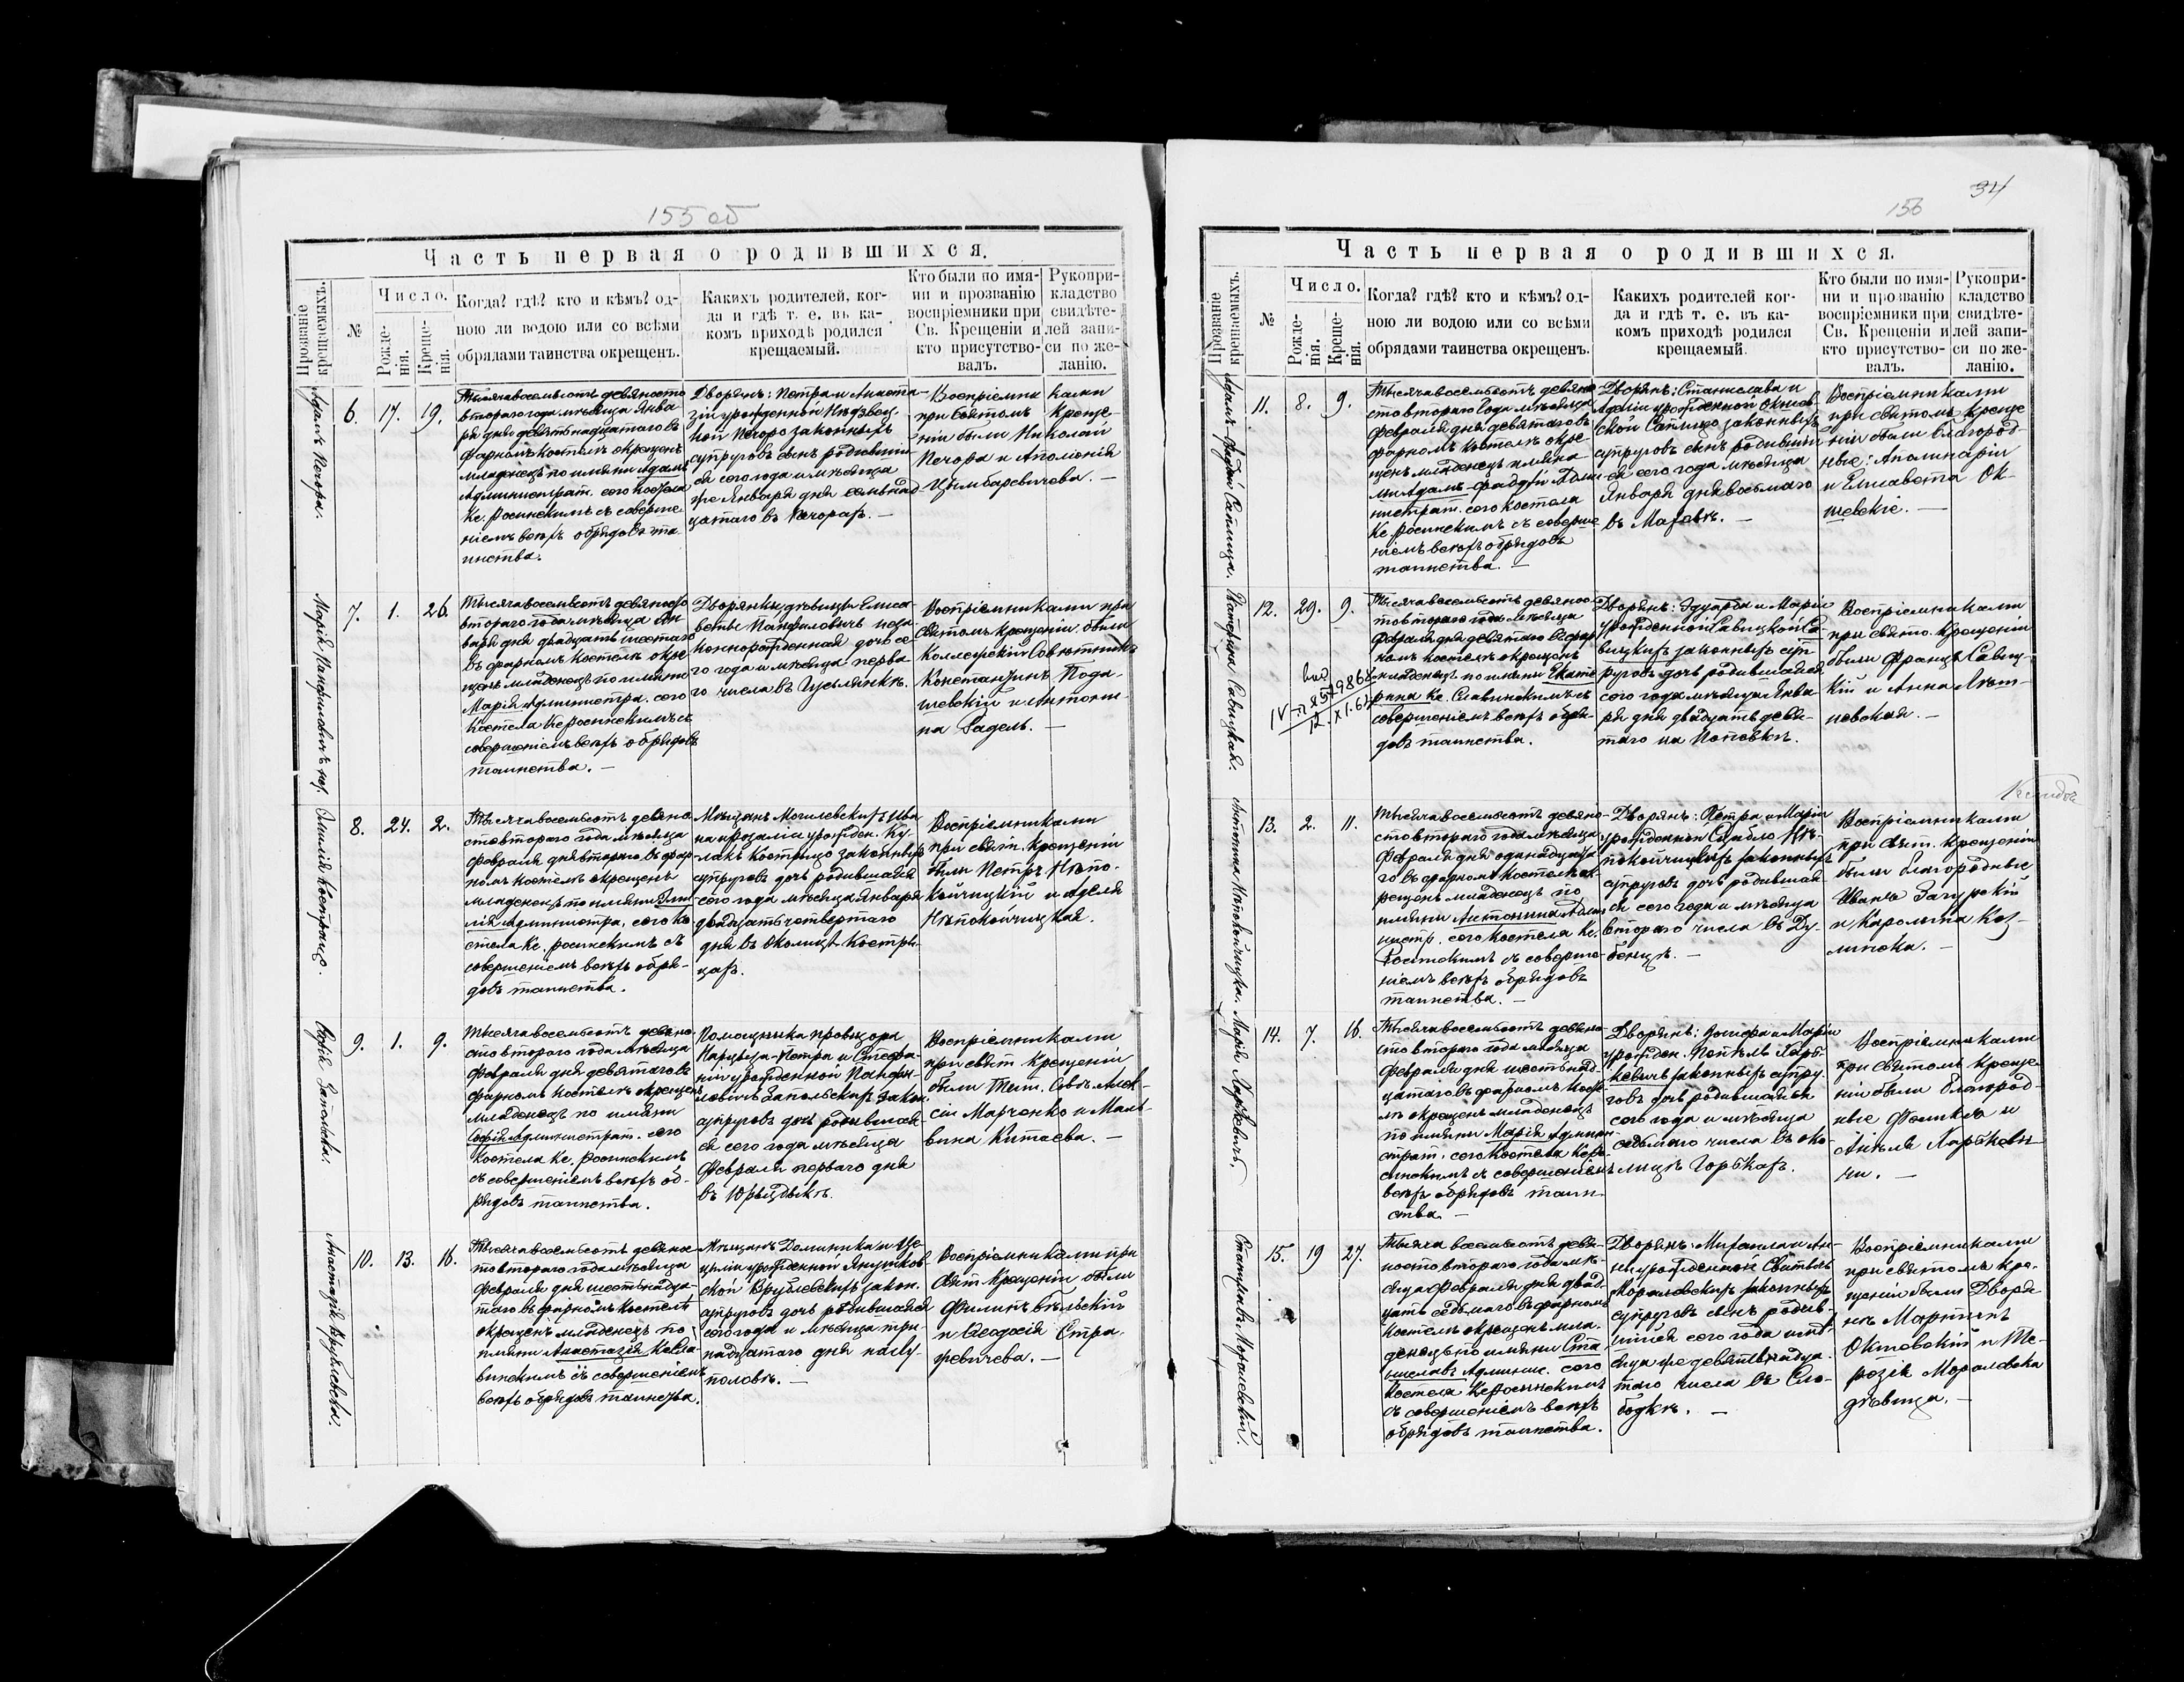 155 об
Часть первая о родившихся.
Прозваніе крещаемыхъ.
№
Число.
Рожде-
нія.
Креще-
нія.
Когда? гдѣ? кто и кѣмъ? од-
ною ли водою или со всѣми
обрядами таинства окрещенъ.
Какихъ родителей, ког-
да и гдѣ т. е. въ ка-
комъ приходѣ родился
крещаемый.
Кто были по имя-
ни и прозванію
воспріемники при
Св. Крещеніи и
кто присутство-
валъ.
Рукопри-
кладство
свидѣте-
лей запи-
си по же-
ланію.
Адамъ Печора.
6. 17. 19.
Тысяча восемьсотъ девяносто
втораго года мѣсяца Янва
ря дня девятьнадцатаго въ
фарномъ костелѣ окрещенъ
младенецъ по имяни Адамъ
Администрат. сего костела
Кс. Росинскимъ съ соверше
ніемъ всѣхъ обрядовъ та
инства.
Дворянъ: Петра и Анаста-
зіи урожденной
Печоро законныхъ
супруговъ сынъ родивший
ся сего года и мѣсяца
же Января дня семьнад
цатаго въ Печорах. —
Воспріемни ками
при Святомъ Креще-
ніи были Ни колай
Печора и Аполонія
Цымбаревичева. —
Марія Панфиловичъ
7. 1. 26.
Тысяча восемьсотъ девяносто
втораго года мѣсяца Ян
варя дня двадцать шестаго
въ фарномъ костелѣ окре
щенъ младенецъ по имяни
Марія Администра. сего
костела Кс Росинскимъ съ
совершеніемъ всѣхъ обрядовъ
таинства. —
Дворянки дѣвицы Елиса
веты Панфиловичъ неза-
коннорожденная дочь се-
го года и мѣсяца перва
го числа въ
Воспріемниками при
Святомъ Крещеніи были
Коллежскій Совѣтникъ
Константинъ Пода-
шевскій и Антони-
на Гадель. —
Эмилія Кострицо.
8. 24. 2.
Тысяча восемьсотъ девяно
сто втораго года мѣсяца
Февраля дня втораго въ фар
номъ костелѣ окрещенъ
младенецъ по имяни Эми
лія Администра. сего ко
стела Кс. Росинскимъ съ
совершеніемъ всѣхъ обря-
довъ таинства.
Мѣщанъ Могилевских Ива
на и Розаліи урожден. Ку-
лакъ Кострицо законныхъ
супруговъ дочь родившаяся
сего года мѣсяца Января
двадцать четвертаго
дня въ околицѣ Костри-
цах.
Воспріемниками
при свят. Крещеніи
были Петръ Нѣпо-
койчицкій и Аделя
Нѣпокойчицкая.
Софія Запольска.
9. 1. 9.
Тысяча восемьсотъ девяно-
сто втораго года мѣсяца
Февраля дня девятаго въ
фарномъ костелѣ окрещенъ
младенецъ по имяни
Софія Администрат. сего
костела Кс. Росинскимъ
съ совершеніемъ всѣхъ об-
рядовъ таинства.
Помощника провизора
Нарциза-Петра и Стефа-
ніи урожденной Панфи-
ловичъ Запольских закон.
супруговъ дочь родившая-
ся сего года мѣсяца
Февраля перваго дня
въ Юрыздыкѣ.
Воспріемниками
при свят. Крещеніи
были Тит. Совѣ. Алек-
сій Марченко и Маль-
вина Китаева. —
Анастазія Врублевска.
10. 13. 16.
Тысяча восемьсотъ девянос
то втораго года мѣсяца
Февраля дня шестьнадца-
таго въ фарномъ костелѣ
окрещенъ младенецъ по
имяни Анастазія Кс Сла-
винскимъ съ совершеніемъ
всѣхъ обрядовъ таинства.
Мѣщанъ Доминика и Це-
циліи урожденной Янушков-
ской Врублевских закон.
супруговъ дочь родившаяся
сего года и мѣсяца три-
надцатаго дня на
половѣ. —
Воспріемниками при
Свят. Крещеніи были
Филипъ Бѣльскій
и Ѳеодосія Стра-
жевичева. —
34
156
Часть первая о родившихся.
Прозваніе крещаемыхъ.
№
Число.
Рожде-
нія.
Креще-
нія.
Когда? гдѣ? кто и кѣмъ? од-
ною ли водою или со всѣми
обрядами таинства окрещенъ.
Какихъ родителей ког-
да и гдѣ т. е. въ ка-
комъ приходѣ родился
крещаемый.
Кто были по имя-
ни и прозванію
воспріемники при
Св. Крещеніи и
кто присутство-
валъ.
Рукопри-
кладство
свидѣте-
лей запи-
си по же-
ланію.
Адамъ-Фаддѣй Сапицо.
11. 8. 9.
Тысяча восемьсотъ девяно-
сто втораго года мѣсяца
Февраля дня девятаго въ
фарномъ костелѣ окре
щенъ младенецъ имяна
ми Адамъ-Фаддѣй Адми
нистрат. сего костела
Кс. Росинскимъ съ соверше
ніемъ всѣхъ обрядовъ
таинства. —
Дворянъ: Станислава и
Аделіи урожденной Окшев-
ской Сапицо законныхъ
супруговъ сынъ родивший
ся сего года мѣсяца
Января дня восьмаго
въ Махавѣ. —
Воспріемниками
при святомъ Креще
ніи были благород-
ные: Аполинарій
и Елисавета Ок-
шевскіе. —
Катерина Савицкая.
12. 29. 9.
Тысяча восемьсотъ девянос
то втораго года мѣсяца
Февраля дня девятаго въ фар
номъ костелѣ окрещенъ
младенецъ по имяни Екате
рина Кс. Славинскимъ съ
совершеніемъ всѣхъ обря-
довъ таинства.
Дворянъ: Эдуарда и Маріи
урожденной Савицкой Са-
вицких законныхъ суп
руговъ дочь родившаяся
сего года мѣсяца Янва
ря дня двадцать девя-
таго на Поповкѣ.
Воспріемниками
при свято. Крещеніи
были Францъ Савиц-
кій и Анна
новская. —
Антонина Нѣпокойчицка.
13. 2. 11.
Тысяча восемьсотъ девяно-
сто втораго года мѣсяца
Февраля дня одинадцата
го въ фарномъ костелѣ ок-
рещенъ младенецъ по
имяни Антонина Адми
нистр. сего костела Кс.
Росинскимъ съ соверше-
ніемъ всѣхъ обрядовъ
таинства. —
Дворянъ: Петра и Маріи
урожденной Скабло Нѣ-
покойчицких законныхъ
супруговъ дочь родившая-
ся сего года и мѣсяца
втораго числа въ Ду-
бенцѣ. —
Воспріемниками
при Свят. Крещеніи
были благородные
Иванъ Загурскій
и Каролина Коз-
линска. —
Марія Харкевичъ,
14. 7. 16.
Тысяча восемьсотъ девяно-
сто втораго года мѣсяца
Февраля дня шестьнад-
цатаго въ фарномъ косте-
лѣ окрещенъ младенецъ
по имяни Марія Админи
страт. сего костела Кс Ро
синскимъ съ совершеніемъ
всѣхъ обрядовъ таин-
ства. —
Дворянъ: Іосифа и Маріи
урожден.
законныхъ супру-
говъ дочь родившаяся
сего года и мѣсяца
седьмаго числа въ око-
лицѣ Горбках.
Воспріемниками
при Святомъ Креще-
ніи были благород-
ные Феликсъ и
чи. —
Станиславъ Моралевскій.
15. 19 27.
Тысяча восемьсотъ девя-
носто втораго года мѣ-
сяца Февраля дня двад
цать седьмаго въ фарномъ
костелѣ окрещенъ мла-
денецъ по имяни Ста-
ниславъ Админис. сего
костела Кс Росинскимъ
съ совершеніемъ всѣхъ
обрядовъ таинства.
Дворянъ: Михаила и Ан-
ны урожденной
Моралевских законныхъ
супруговъ сынъ родив-
шійся сего года и мѣ-
сяца же девятьнадца-
таго числа въ Сло-
бодкѣ. —
Воспріемниками
при святомъ Кре-
щеніи были Дворя
не Мартинъ
Окшовскій и Те-
розія Моралевска
дѣвица. —